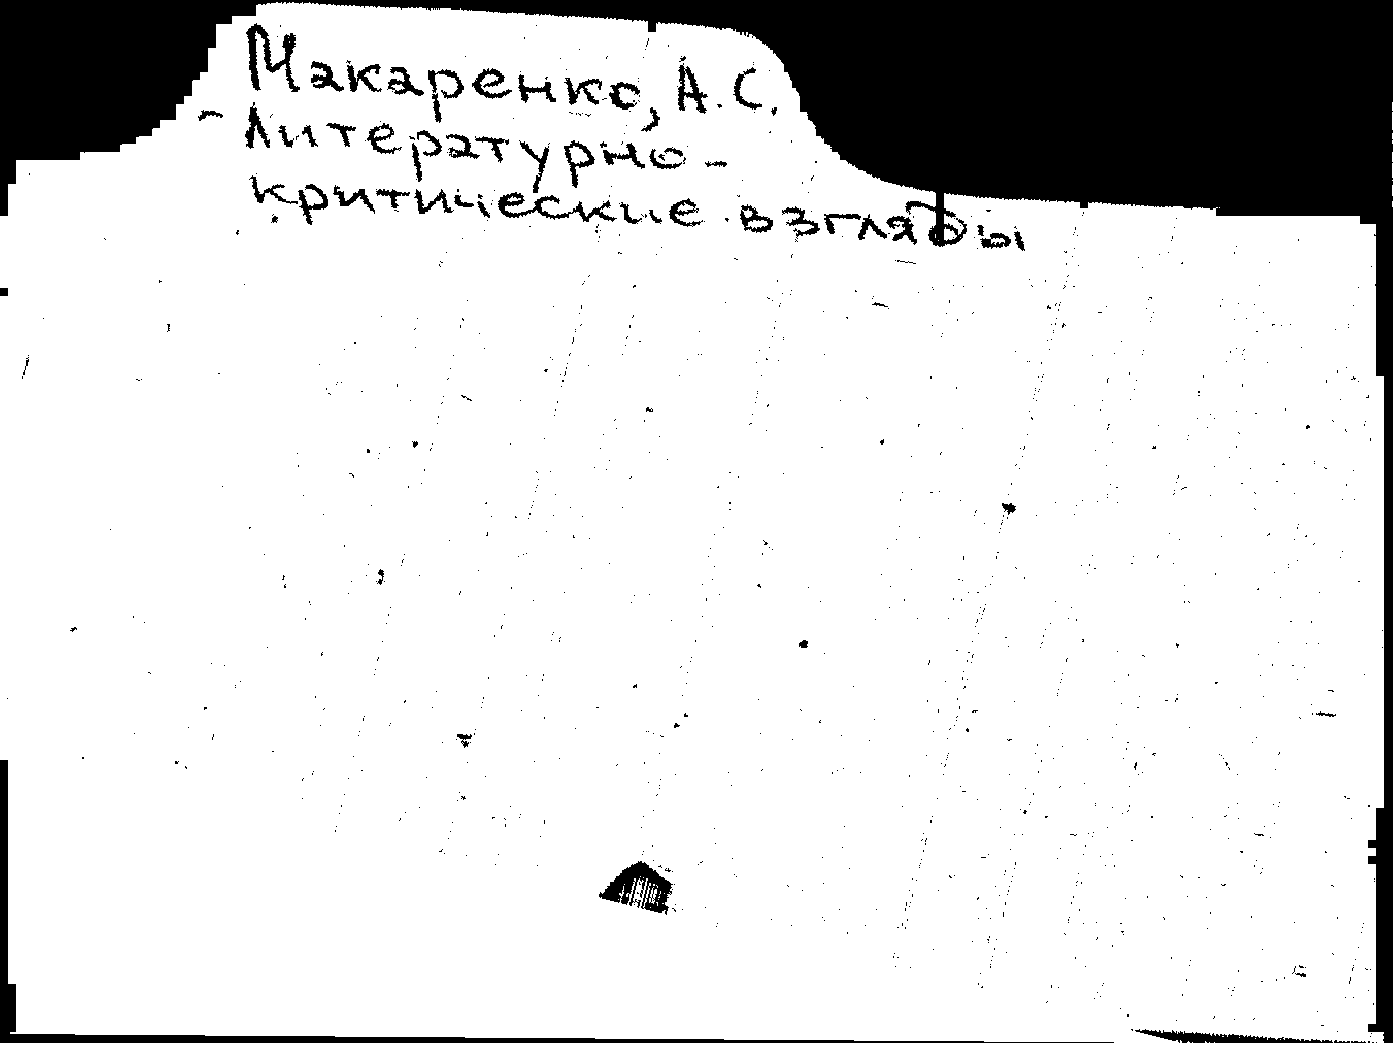 Макаренко, А.С.
- Литературно-
критические взгляды